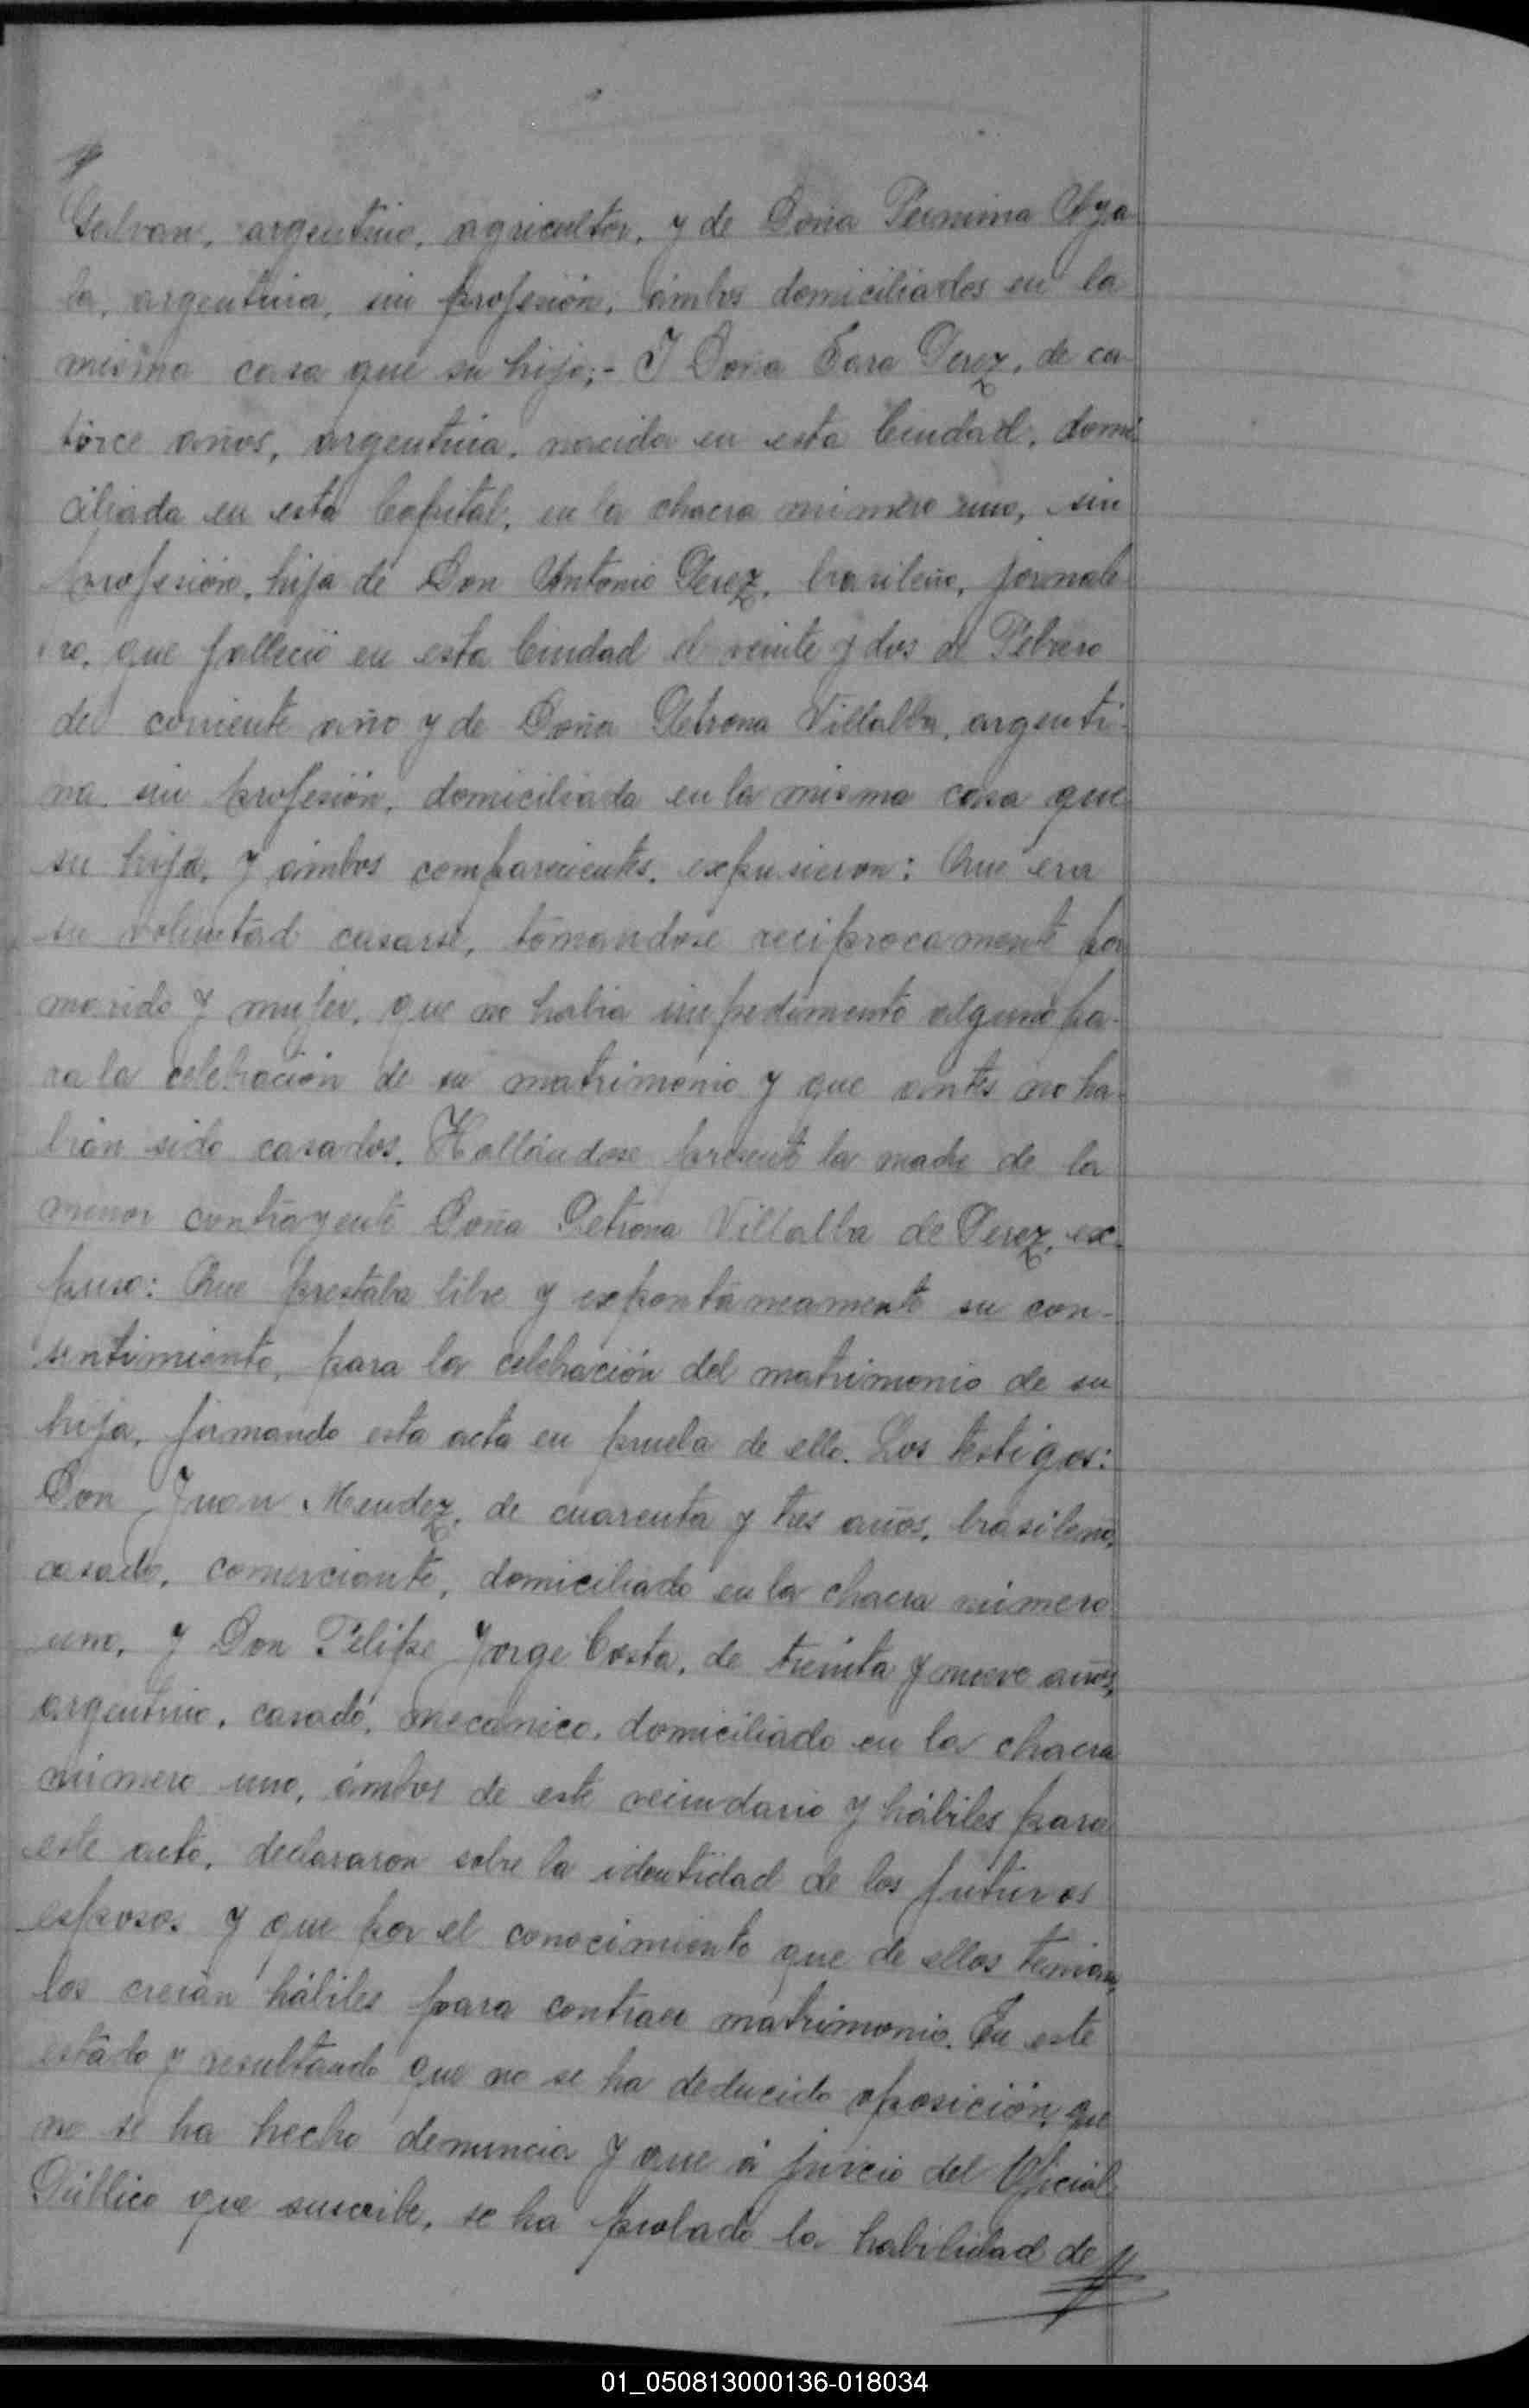 Galvan, argentino, agricultor, y de Doña Fermina Aya
la, argentina, sin profesión, ámbos domiciliados en la
misma casa que su hijo;- I Doña Sara Perez, de ca-
torce años, argentina, nacida en esta Ciudad, domi
ciliada en esta Capital, en la chacra número uno, sin
profesión, hija de Don Antonio Perez, brasileño, jornale
ro, que falleció en esta Ciudad el veinte y dos de Febrero
del corriente año y de Doña Petrona Villalba, argenti-
na, sin profesión, domiciliada en la misma casa que
su hija, y ámbos comparecientes, expusieron: Que era
su voluntad casarse, tomandose reciprocamente por
marido y mujer, que no habia impedimento alguno pa-
ra la celebración de su matrimonio y que antes no ha-
bian sido casados. Hallándose presente la madre de la
menor contrayente Doña Petrona Villalba de Perez, ex-
puso: Que prestaba libre y expontáneamente su con-
sentimiento, para la celebración del matrimonio de su
hija, firmando esta acta en prueba de ello. Los testigos:
Don Juan Mendez, de cuarenta y tres años, brasileño,
casado, comerciante, domiciliado en la chacra número
uno, y Don Felipe Jorge Costa, de treinta y nueve años,
argentino, casado, mecanico, domiciliado en la chacra
número uno, ámbos de este vecindario y hábiles para
este acto, declararon sobre la identidad de los futuros
esposos y que por el conocimiento que de ellos tenian,
los creian hábiles para contraer matrimonio. En este
estado y resultando que no se ha deducido oposición, que
no se ha hecho denuncia y que á juicio del Oficial
Público que suscribe, se ha probado la habilidad de
01_050813000136-018034